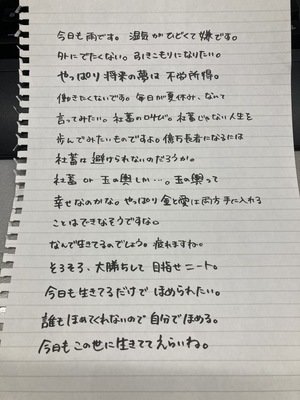 今日も雨です。湿気がひどくて嫌です。
外にでたくない。引きこもりになりたい。
やっぱり将来の夢は不労所得。
働きたくないです。毎日が夏休み、ないて
言ってみたい。社畜の叫び。社畜じゃない人生を
歩んでみたいものですよ。億万長者になるには
社畜は避けられないのだろうか。
社畜 or 玉の輿しか…。玉の輿って
幸せなのかな。やっぱり金と愛は両方手に入れる
ことはできなそうですな。
なんで生きてるのでしょう。疲れますね。
そろそろ、大勝ちして目指せニート。
今日も生きてるだけでほめられたい。
誰もほめてくれないので自分でほめる。
今日もこの世に生きててえらいね。